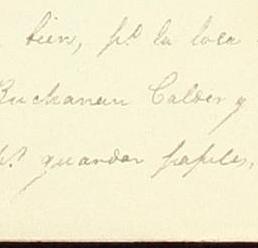 bien, pª la loca
Buchanan Calder y
pª guardar papeles,